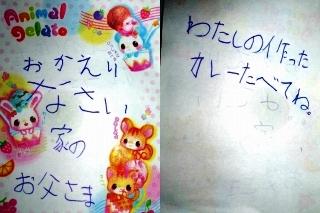 Animal
gelato
おかえり
なさい
家の
お父さま
わたしの作った
カレーたべてね。